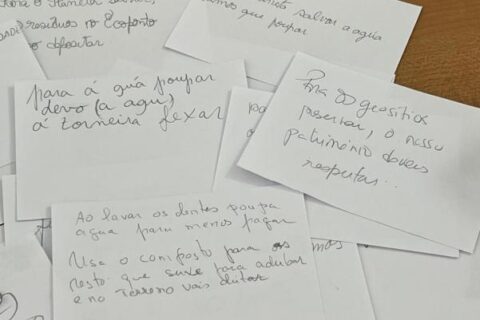 Planeta
resíduos no Ecoponto
o depositar
salvar a água
que poupar
para á guá poupar
devo (a agu)
á torneira fexar
Para os geosítios
preservar, o nosso
património deves
respeitar...
Ao lavar os dentes poupa
agua para menos pagar
Usa o composto para os
resto que para adubar
e no Terreno vais deitar